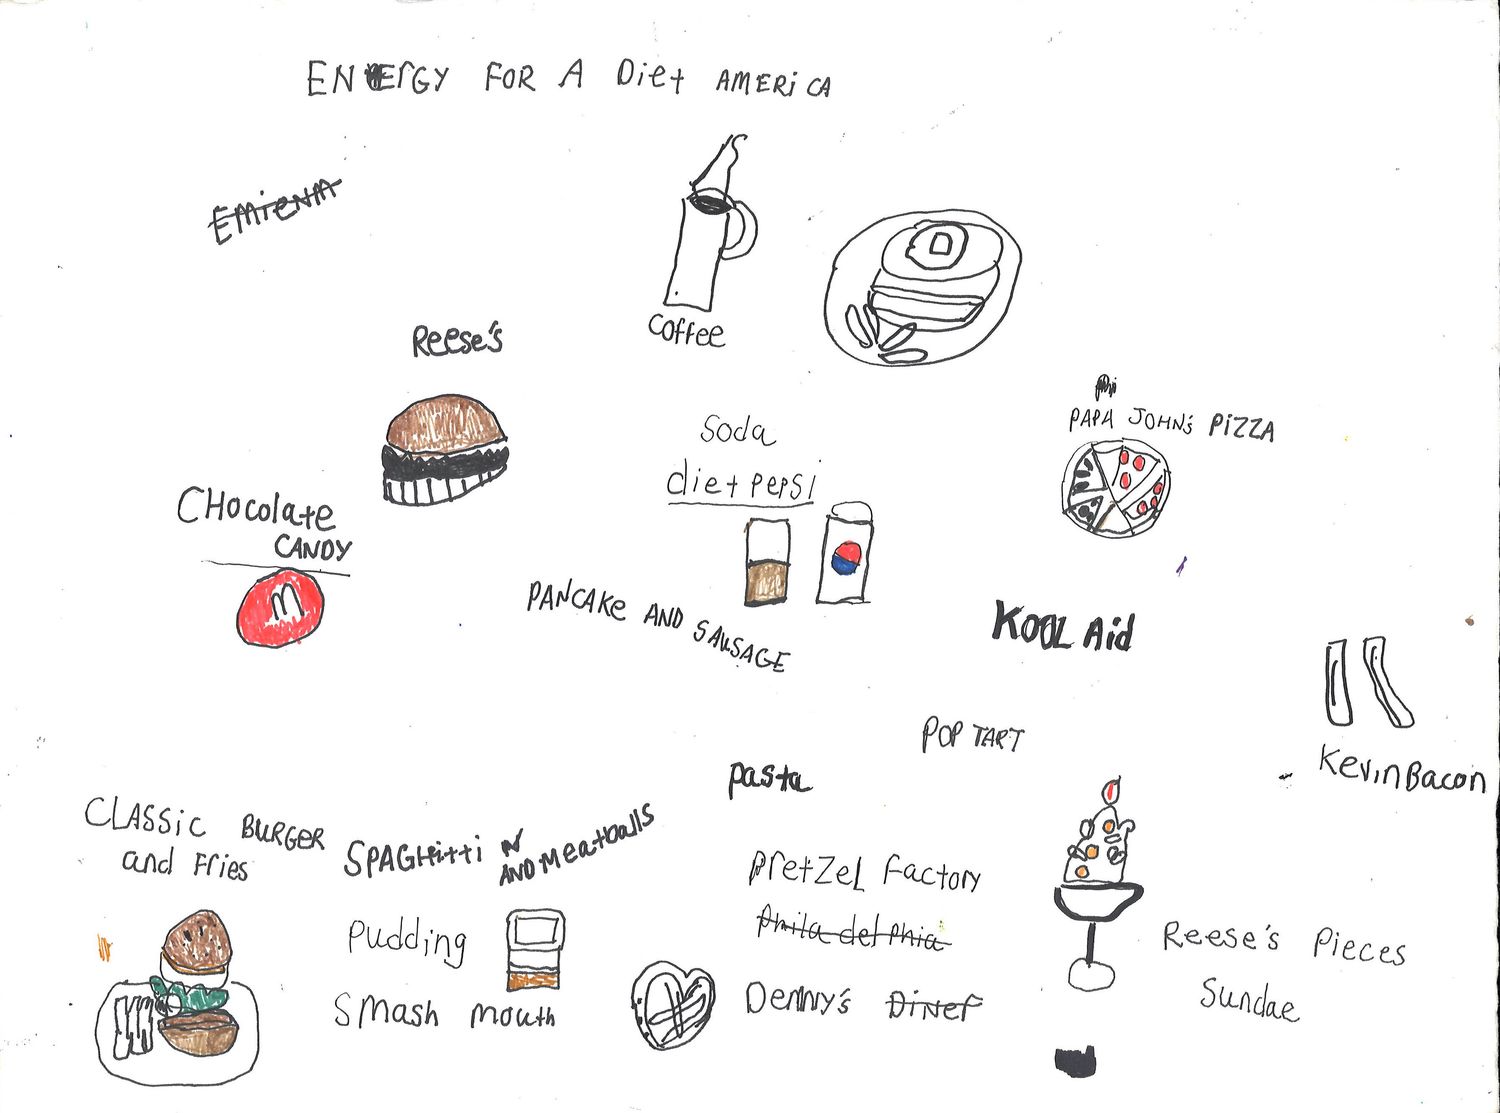 ENERGY FOR A Diet AMERiCA
EMiENM
coffee
REESE'S
PAPA JOHN'S PiZZA
Soda
diet pepsi
CHocolate
CANDY
M
PANCAKE AND SAUSAGE
KOOL Aid
POP TART
KevinBacon
pasta
CLASSiC BURGER
and Fries
SPAGHitti N
AND Meatballs
pretzel factory
Philadelphia
pudding
REESE'S Pieces
Sundae
Smash mouth
DENNY'S DiNEr